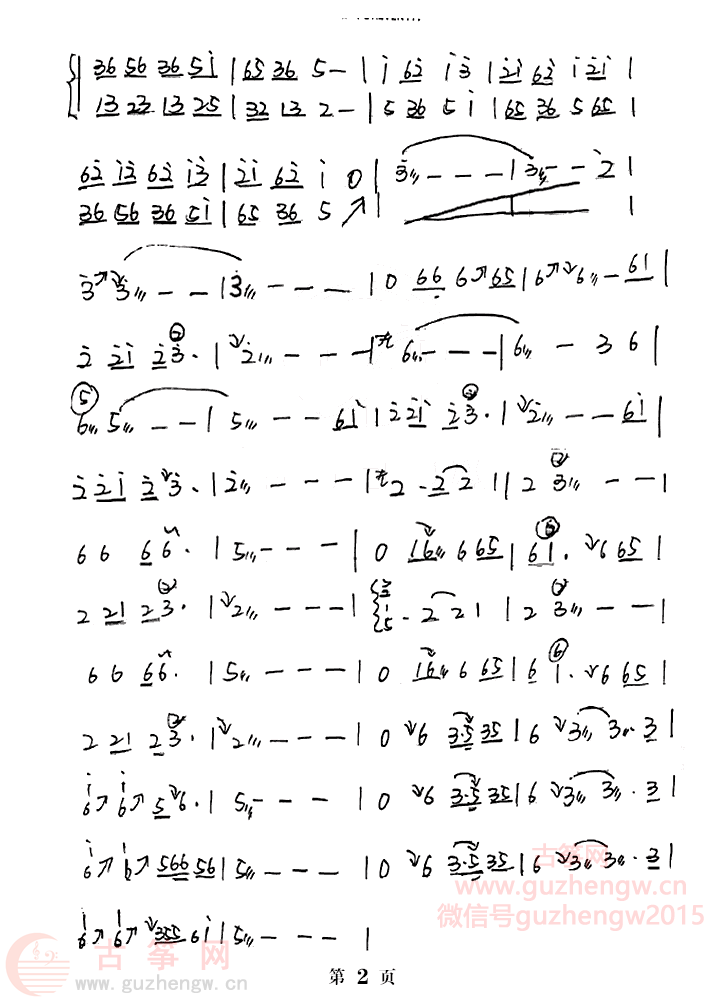 36 56 36 5i | 65 36 5 — | i 62 i 3 | 2i 62 i 2i |
13 23 13 25 | 32 13 2 — | 5 36 5 i | 65 36 5 65 |
62 i2 62 i3 | 2i 62 i 0 | 3 /// - - - | 3 /// - - 2 |
36 56 36 5i | 65 36 5 ↗ | |
3 ↗ 3 /// - - | 3 /// - - — | 0 66 6 ↗ 65 | 6 ↗ 6 /// - 6i |
2 2i 23 · | 2 /// - - - | 6 /// - - - | 6 /// - 3 6 |
⑤
6 /// 5 /// - - | 5 /// - - 6i | 2 2i 23 · | 2 /// - - 6i |
2 2i 2 3 · | 2 /// - - - | 2 · 2 2 1 | 2 3 /// - - |
6 6 66 · | 5 /// - - - | 0 16 /// 6 65 | 61 · 6 65 |
2 21 23 · | 2 /// - - - | · 2 2 1 | 2 3 /// - - |
6 6 66 · | 5 /// - - - | 0 16 /// 6 65 | 6 1 · 6 65 |
2 21 23 · | 2 /// - - - | 0 6 3·5 35 | 6 3 /// 3 ·· 3 |
6 ↗ 6 ↗ 5 6 · | 5 /// - - - | 0 6 3·5 35 | 6 3 /// 3 /// · 3 |
6 ↗ 6 ↗ 566 56 | 5 /// - - - | 0 6 3·5 35 | 6 3 /// 3 /// · 3 |
6 ↗ 6 ↗ 355 6i | 5 /// - - - |
古筝网
www.guzhengw.cn
微信号guzhengw2015
古筝网
www.guzhengw.cn
第 2 页